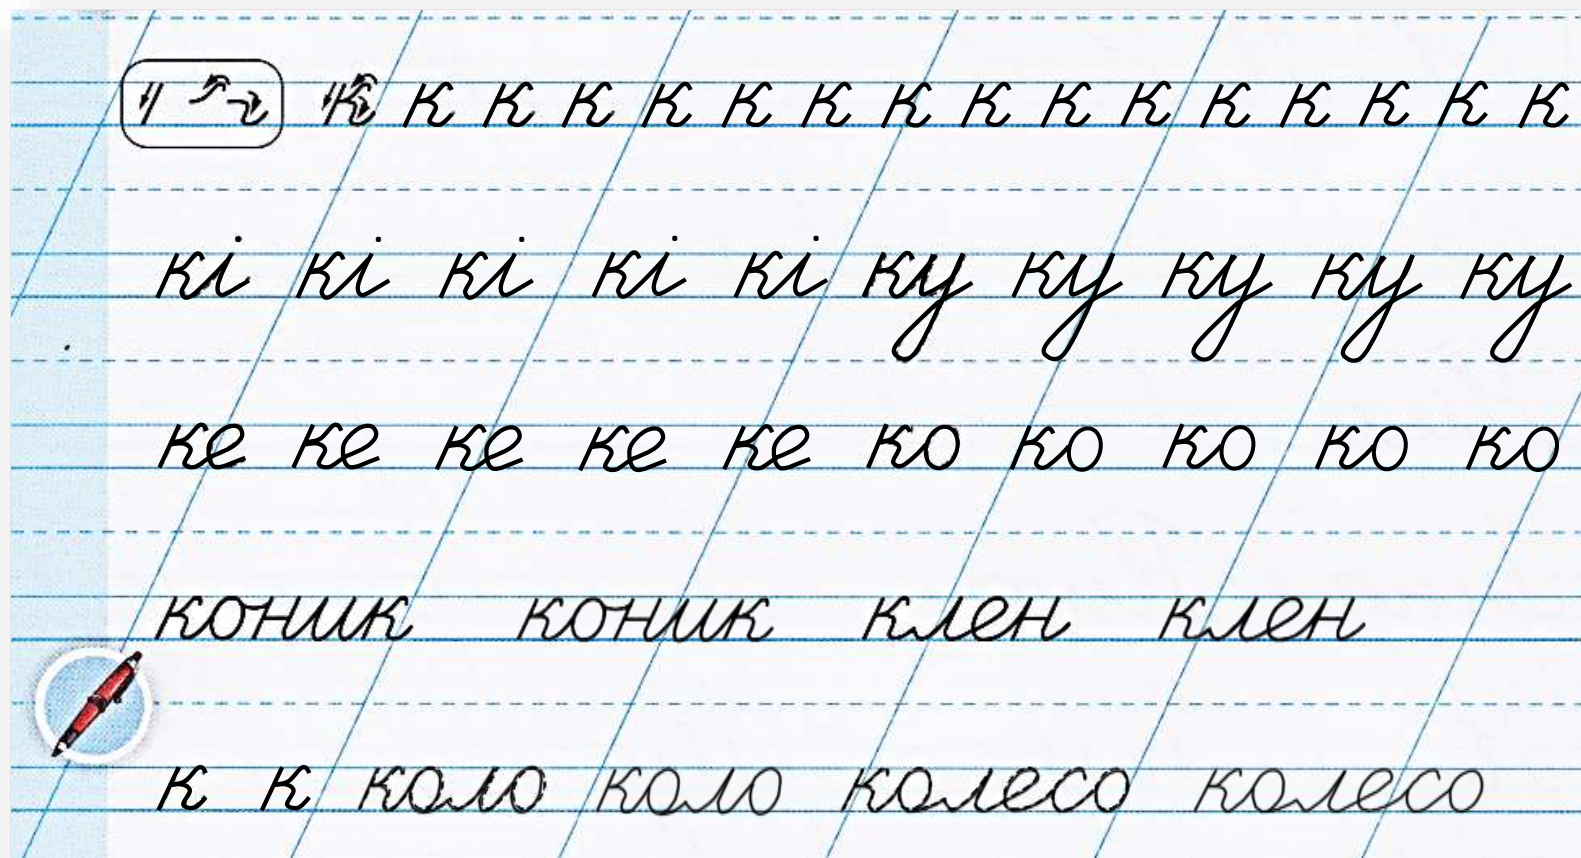 к к к к к к к к к к к к к к к к
кі кі кі кі кі ку ку ку ку ку
ке ке ке ке ке ко ко ко ко ко
коник коник клен клен
к к коло коло колесо колесо